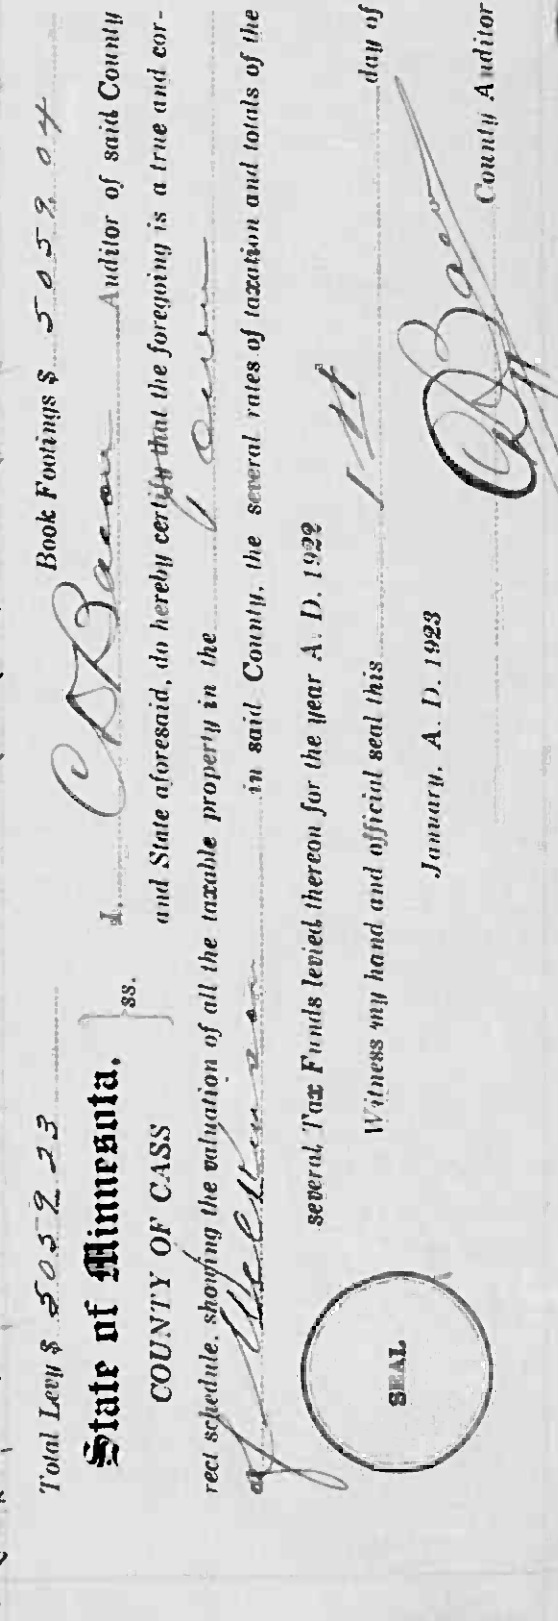 Total Levy $ 5059.23 Book Footings $ 5059.04
State of Minnesota,
COUNTY OF CASS
} ss.
I, C D Bacon Auditor of said County
and State aforesaid, do hereby certify that the foregoing is a true and cor-
rect schedule, showing the valuation of all the taxable property in the Town
of in said County, the several rates of taxation and totals of the
several Tax Funds levied thereon for the year A. D. 1922
Witness my hand and official seal this 1st day of
January, A. D. 1923
C D Bacon
County Auditor
SEAL